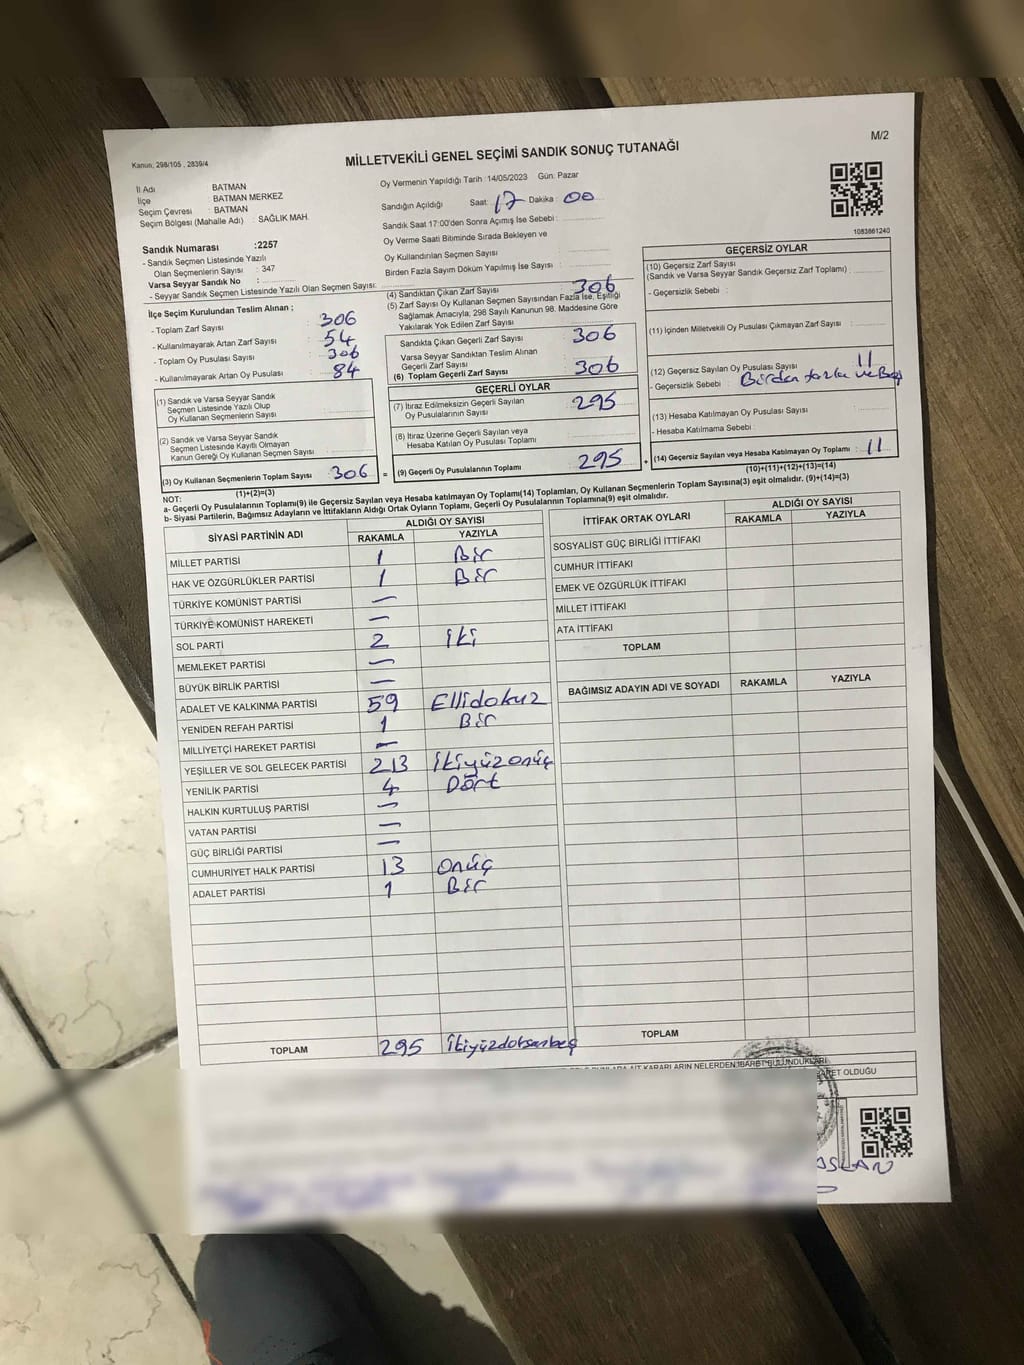 Kanun; 298/105 , 2839/4
M/2
MİLLETVEKİLİ GENEL SEÇİMİ SANDIK SONUÇ TUTANAĞI
İl Adı : BATMAN
İlçe : BATMAN MERKEZ
Seçim Çevresi : BATMAN
Seçim Bölgesi (Mahalle Adı) : SAĞLIK MAH.
Sandık Numarası :2257
- Sandık Seçmen Listesinde Yazılı
Olan Seçmenlerin Sayısı : 347
Varsa Seyyar Sandık No :
- Seyyar Sandık Seçmen Listesinde Yazılı Olan Seçmen Sayısı:
Oy Vermenin Yapıldığı Tarih :14/05/2023 Gün: Pazar
Sandığın Açıldığı Saat: 17 Dakika : 00
Sandık Saat 17:00'den Sonra Açılmış İse Sebebi :
Oy Verme Saati Bitiminde Sırada Bekleyen ve
Oy Kullandırılan Seçmen Sayısı :
Birden Fazla Sayım Döküm Yapılmış İse Sayısı :
1083661240
İlçe Seçim Kurulundan Teslim Alınan ;
- Toplam Zarf Sayısı : 306
- Kullanılmayarak Artan Zarf Sayısı : 54
- Toplam Oy Pusulası Sayısı : 306
- Kullanılmayarak Artan Oy Pusulası : 84
(1) Sandık ve Varsa Seyyar Sandık
Seçmen Listesinde Yazılı Olup
Oy Kullanan Seçmenlerin Sayısı :
(2) Sandık ve Varsa Seyyar Sandık
Seçmen Listesinde Kayıtlı Olmayan
Kanun Gereği Oy Kullanan Seçmen Sayısı :
(3) Oy Kullanan Seçmenlerin Toplam Sayısı : 306
(1)+(2)=(3)
(4) Sandıktan Çıkan Zarf Sayısı : 306
(5) Zarf Sayısı Oy Kullanan Seçmen Sayısından Fazla İse, Eşitliği
Sağlamak Amacıyla; 298 Sayılı Kanunun 98. Maddesine Göre
Yakılarak Yok Edilen Zarf Sayısı :
Sandıkta Çıkan Geçerli Zarf Sayısı : 306
Varsa Seyyar Sandıktan Teslim Alınan
Geçerli Zarf Sayısı :
(6) Toplam Geçerli Zarf Sayısı : 306
GEÇERLİ OYLAR
(7) İtiraz Edilmeksizin Geçerli Sayılan
Oy Pusulalarının Sayısı : 295
(8) İtiraz Üzerine Geçerli Sayılan veya
Hesaba Katılan Oy Pusulası Toplamı :
= (9) Geçerli Oy Pusulalarının Toplamı : 295
GEÇERSİZ OYLAR
(10) Geçersiz Zarf Sayısı
(Sandık ve Varsa Seyyar Sandık Geçersiz Zarf Toplamı) :
- Geçersizlik Sebebi :
(11) İçinden Milletvekili Oy Pusulası Çıkmayan Zarf Sayısı :
(12) Geçersiz Sayılan Oy Pusulası Sayısı : 11
- Geçersizlik Sebebi : Birden fazla
(13) Hesaba Katılmayan Oy Pusulası Sayısı :
- Hesaba Katılmama Sebebi :
+ (14) Geçersiz Sayılan veya Hesaba Katılmayan Oy Toplamı : 11
(10)+(11)+(12)+(13)=(14)
NOT:
a- Geçerli Oy Pusulalarının Toplamı(9) ile Geçersiz Sayılan veya Hesaba katılmayan Oy Toplamı(14) Toplamları, Oy Kullanan Seçmenlerin Toplam Sayısına(3) eşit olmalıdır. (9)+(14)=(3)
b- Siyasi Partilerin, Bağımsız Adayların ve İttifakların Aldığı Ortak Oyların Toplamı, Geçerli Oy Pusulalarının Toplamına(9) eşit olmalıdır.
SİYASİ PARTİNİN ADI ALDIĞI OY SAYISI
RAKAMLA YAZIYLA
MİLLET PARTİSİ 1 Bir
HAK VE ÖZGÜRLÜKLER PARTİSİ 1 Bir
TÜRKİYE KOMÜNİST PARTİSİ —
TÜRKİYE KOMÜNİST HAREKETİ —
SOL PARTİ 2 iki
MEMLEKET PARTİSİ —
BÜYÜK BİRLİK PARTİSİ —
ADALET VE KALKINMA PARTİSİ 59 Ellidokuz
YENİDEN REFAH PARTİSİ 1 Bir
MİLLİYETÇİ HAREKET PARTİSİ —
YEŞİLLER VE SOL GELECEK PARTİSİ 213 ikiyüzonüç
YENİLİK PARTİSİ 4 Dört
HALKIN KURTULUŞ PARTİSİ —
VATAN PARTİSİ —
GÜÇ BİRLİĞİ PARTİSİ —
CUMHURİYET HALK PARTİSİ 13 Onüç
ADALET PARTİSİ 1 Bir
TOPLAM 295 ikiyüzdoksanbeş
İTTİFAK ORTAK OYLARI ALDIĞI OY SAYISI
RAKAMLA YAZIYLA
SOSYALİST GÜÇ BİRLİĞİ İTTİFAKI
CUMHUR İTTİFAKI
EMEK VE ÖZGÜRLÜK İTTİFAKI
MİLLET İTTİFAKI
ATA İTTİFAKI
TOPLAM
BAĞIMSIZ ADAYIN ADI VE SOYADI RAKAMLA YAZIYLA
TOPLAM
KARARLARIN NELERDEN İBARET BULUNDUKLARI
OLDUĞU